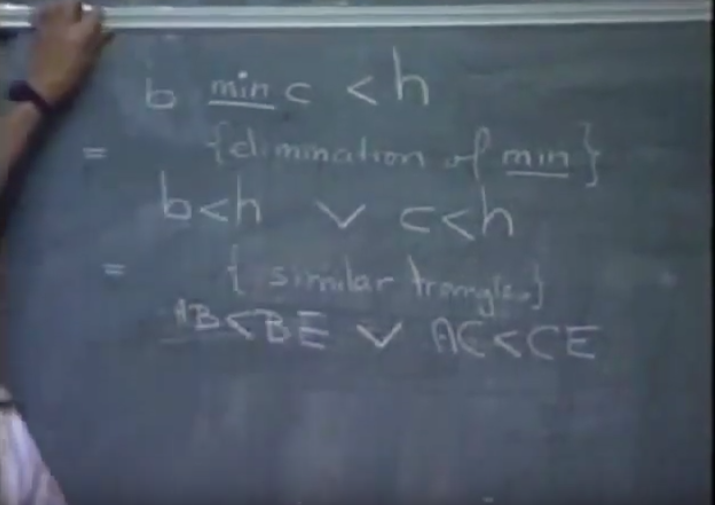 b min c < h
= {elimination of min}
b<h ∨ c<h
= { similar triangles}
AB<BE ∨ AC<CE